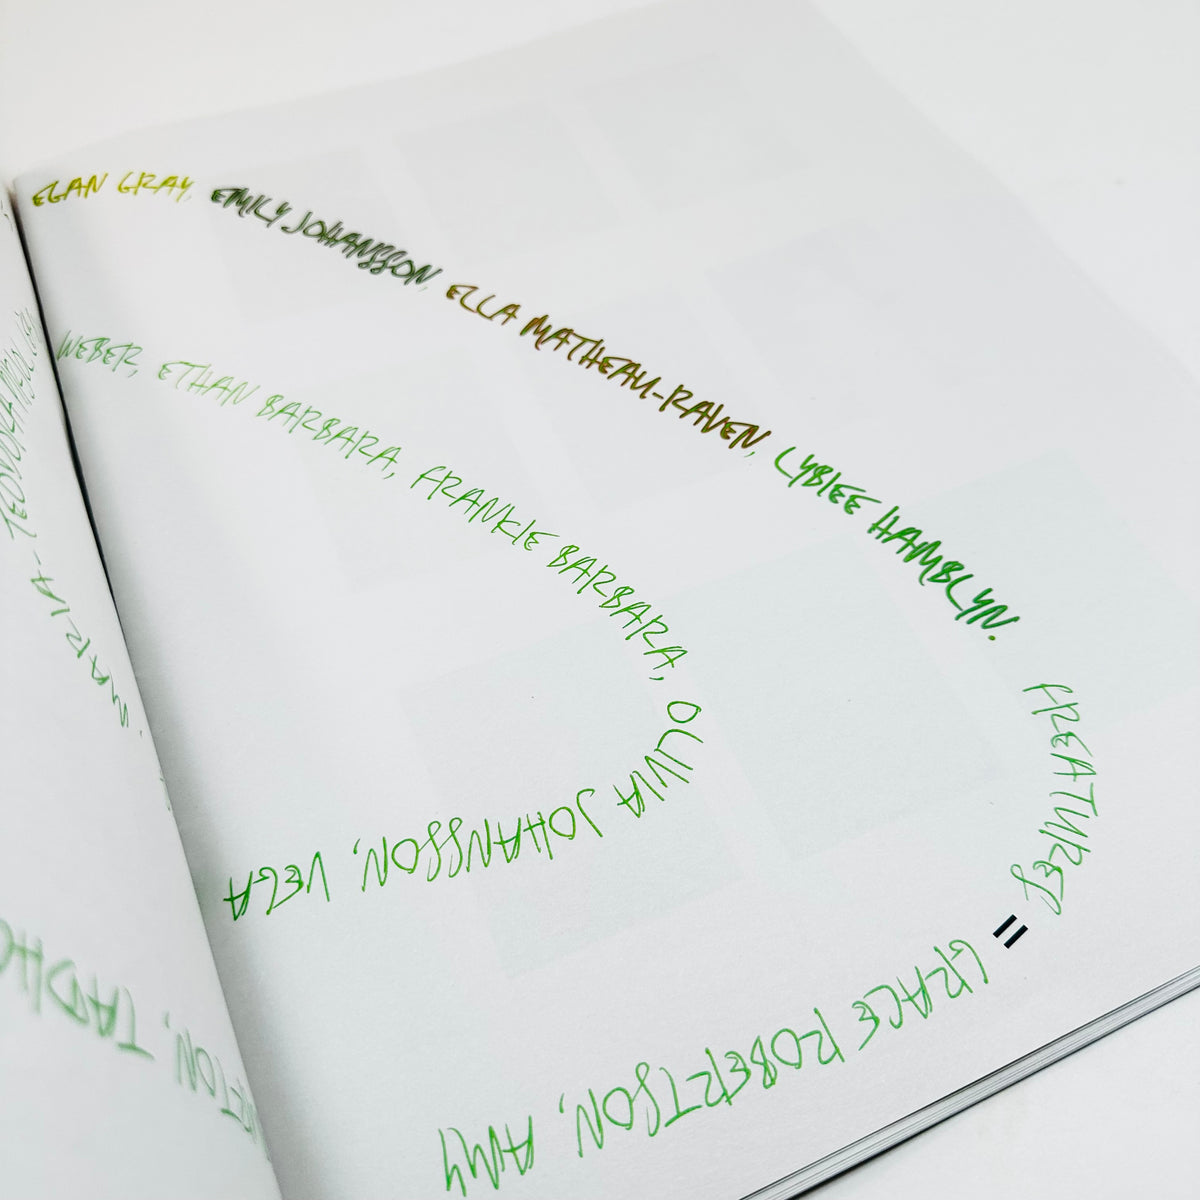 EGAN GRAY, EMILY JOHANSSON, ELLA MATHEAU-RAVEN, LYBIEE HAMBLYN.
FREATURES = GRACE ROBERTSON, AMY
WEBER, ETHAN BARBARA, FRANKIE BARBARA, OLIVIA JOHANSSON, VEGA
MARIA-
TON, TADHG